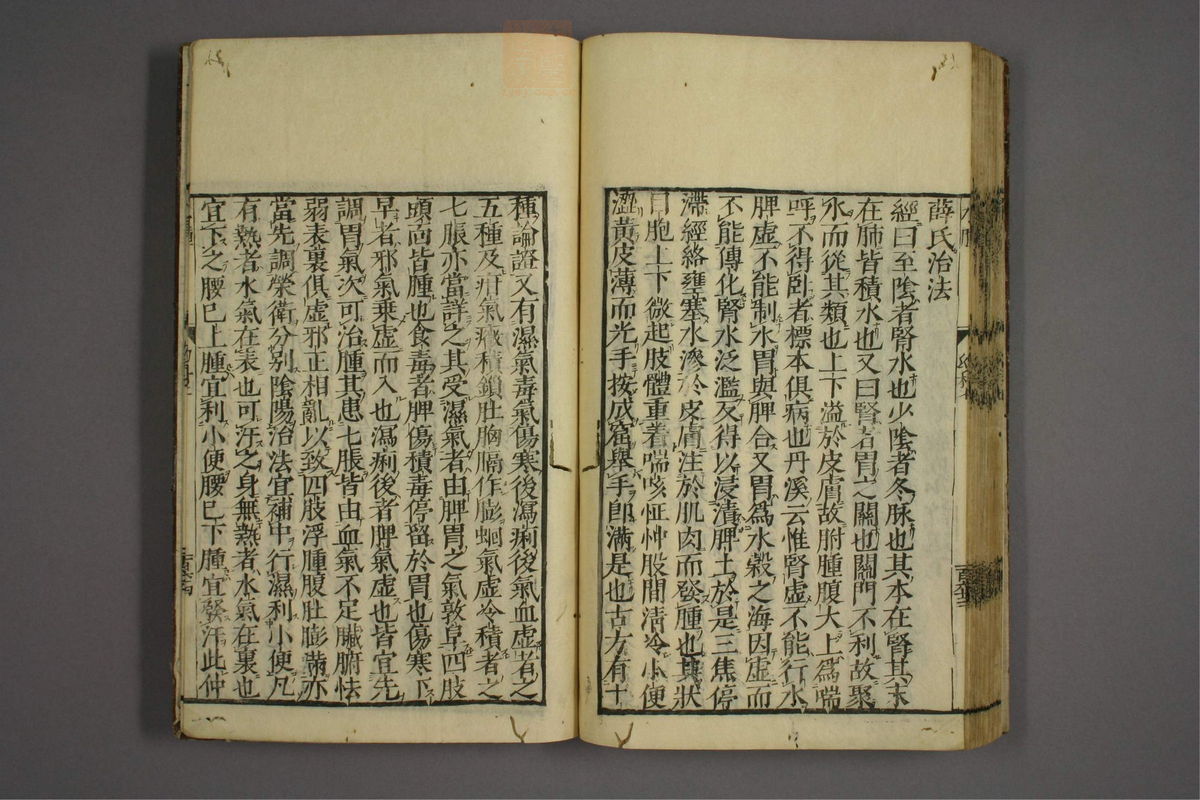 薛氏治法
經曰至陰者腎水也少陰者冬脉也其本在腎其末
在肺皆積水也又曰腎者胃之關也關門不利故聚
水而從其類也上下溢於皮膚故胕腫腹大上爲喘
呼不得卧者標本俱病也丹溪云惟腎虛不能行水
脾虛不能制水胃與脾合又胃爲水穀之海因虛而
不能傳化腎水泛濫反得以浸漬脾土於是三焦停
滯經絡壅塞水滲於皮膚注於肌肉而發腫也其狀
目胞上下微起肢體重着喘咳怔忡股間清冷小便
澀黄皮薄而光手按成窟舉手即滿是也古方有十
種論證又有濕氣毒氣傷寒後瀉痢後氣血虛者之
五種及疳氣癥積鎖肚胸膈作膨蛔氣虛冷積者之
七脹亦當詳之其受濕氣者由脾胃之氣敦阜四肢
頭面皆腫也食毒者脾傷積毒停留於胃也傷寒下
早者邪氣乗虛而入也瀉痢後者脾氣虛也皆宜先
調胃氣次可治腫其患七脹皆由血氣不足臟腑怯
弱表裏俱虛邪正相亂以致四肢浮腫腹肚膨滿亦
當先調榮衛分别陰陽治法宜補中行濕利小便凡
有熱者水氣在表也可汗之身無熱者水氣在裏也
宜下之腰已上腫宜利小便腰已下腫宜發汗此仲